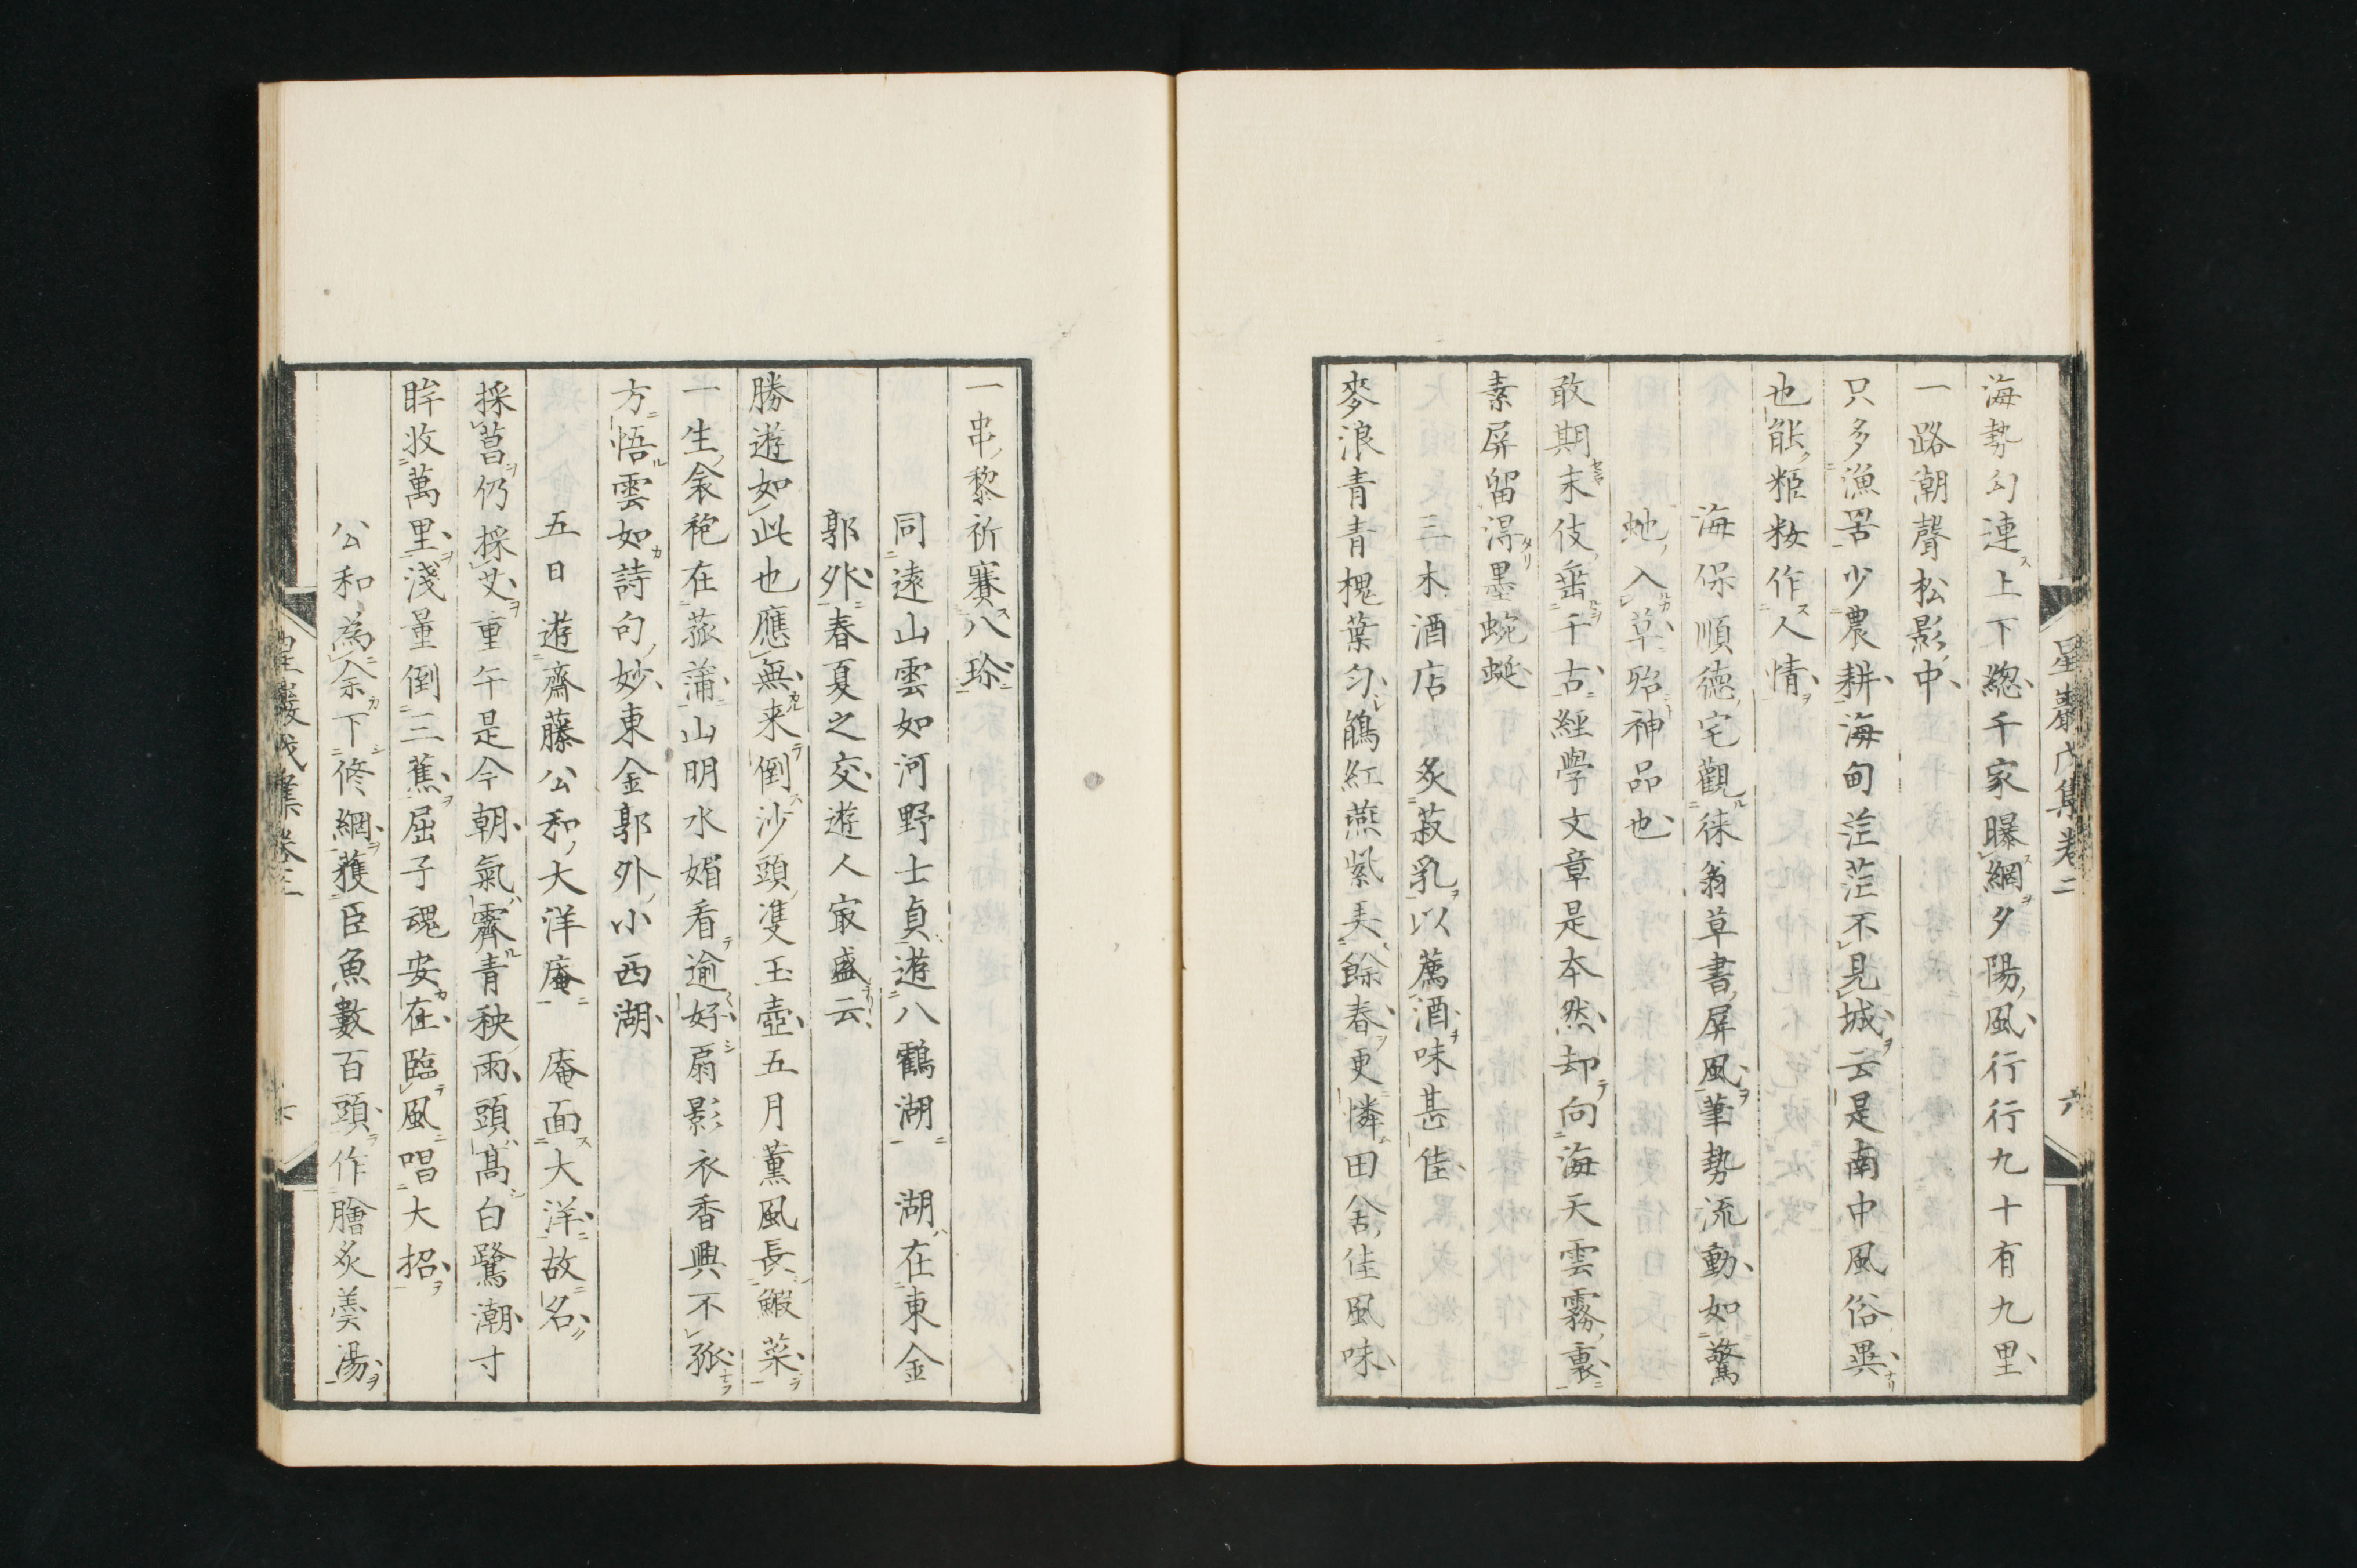 星巖戊集卷二 六
海勢勾連上下總千家曝網夕陽風行行九十有九里
一路潮聲松影中
只多漁罟少農耕海甸茫茫不見城云是南中風俗異
也能粔籹作人情
海保順德宅觀徠翁草書屏風筆勢流動如驚
虵入草殆神品也
敢期末伎垂千古經學文章是本然却向海天雲霧裏
素屏留得墨蜿蜒
三木酒店炙菽乳以薦酒味甚佳
麥浪青青槐葉勻鵑紅燕紫美餘春更憐田舍佳風味
一串黎祈賽八珍
同遠山雲如河野士貞遊八鶴湖 湖在東金
郭外春夏之交遊人㝡盛云
勝遊如此也應無来倒沙頭隻玉壺五月薰風長鰕菜
一生衾袍在菰蒲山明水媚看逾好扇影衣香興不孤
方悟雲如詩句妙東金郭外小西湖
五日遊齋藤公和大洋庵 庵面大洋故名
採菖仍採艾重午是今朝氣霽青秧雨頭高白鷺潮寸
眸收萬里淺量倒三蕉屈子魂安在臨風唱大招
公和為余下修網獲巨魚數百頭作膾炙羮湯
星巖戊集卷二 七